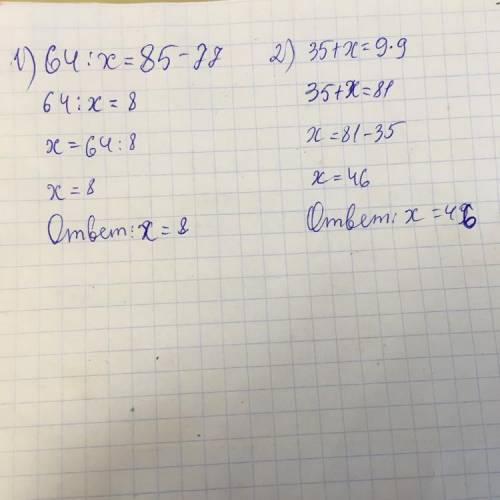 1) 64:x=85-77
64:x=8
x=64:8
x=8
Ответ: x=8
2) 35+x=9·9
35+x=81
x=81-35
x=46
Ответ: x=46